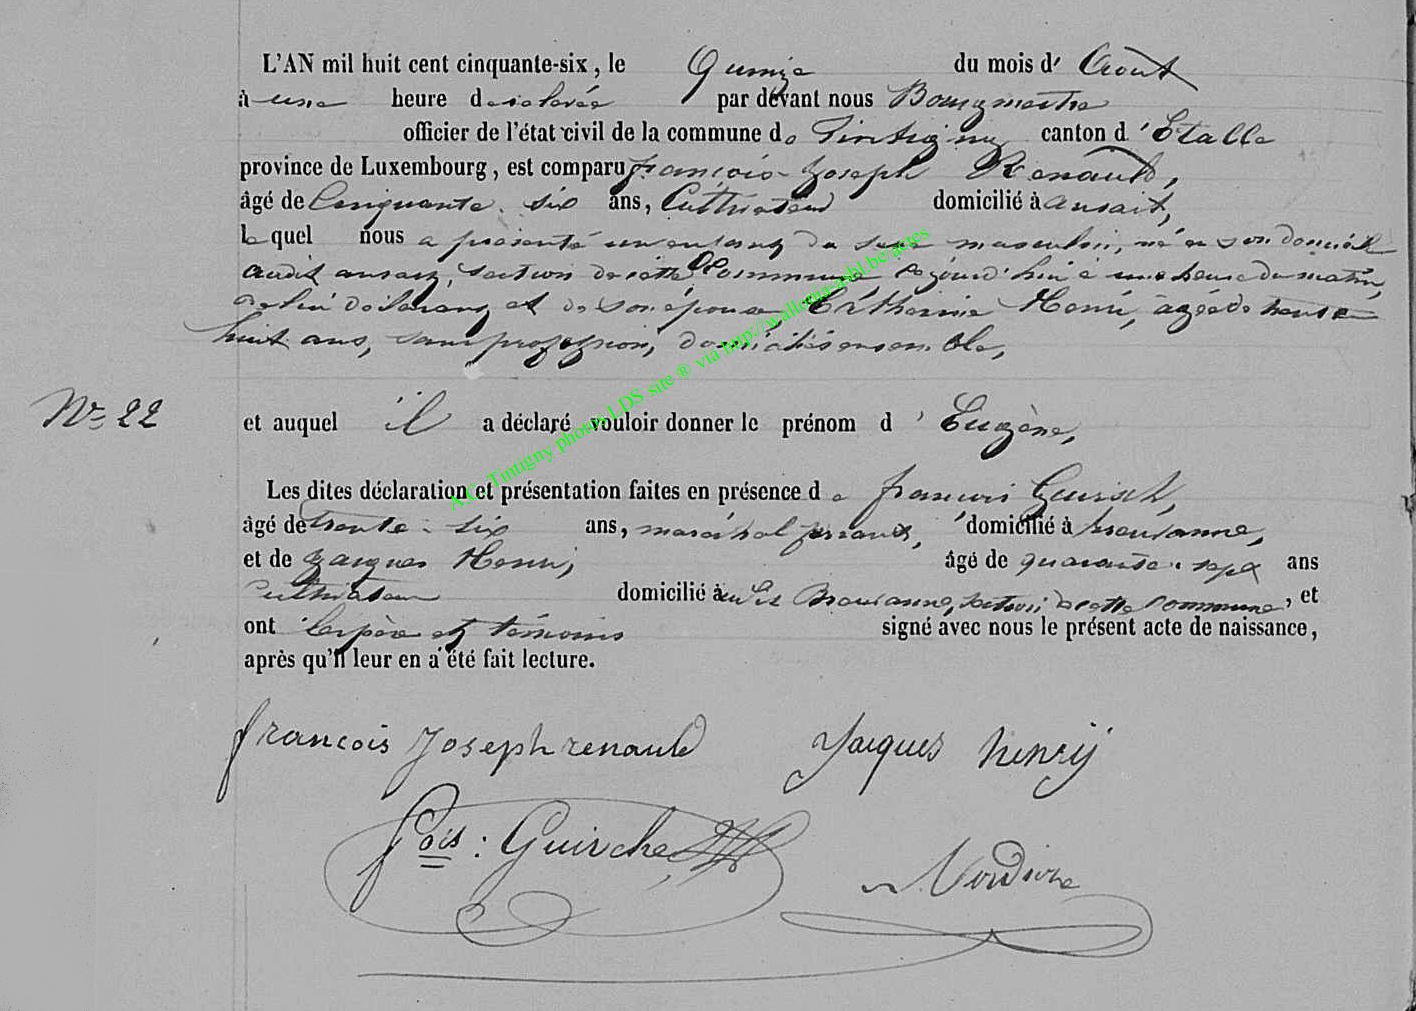 L'AN mil huit cent cinquante-six, le Quinze du mois d' Aout
à une heure de relevée par devant nous Bourgmestre
officier de l'état civil de la commune de Tintigny canton d' Etalle
province de Luxembourg, est comparu françois Joseph Renauld,
âgé de Cinquante six ans, Cultivateur domicilié à ansart,
lequel nous a présenté un enfant du sexe masculin, né en son domicile
audit ansart, section de cette Commune, cejourd'hui à une heure du matin,
de lui déclarant et de son épouse, Catherine Henri, agée de trente
huit ans, sans profession, domiciliés ensemble,
Nº 22 et auquel il a déclaré vouloir donner le prénom d' Eugène,
Les dites déclaration et présentation faites en présence de françois Guirsch,
âgé de trente six ans, maréchal ferrant, domicilié à Breuvanne,
et de Jacques Henri, âgé de quarante sept ans
Cultivateur domicilié Breuvanne, section de cette Commune, et
ont les père et témoins signé avec nous le présent acte de naissance,
après qu'il leur en a été fait lecture.
francois Joseph renauld Jacques henrij
fois: Guirche
A.C. Tintigny photos LDS site ® via http://wallonia-asbl.be/actes